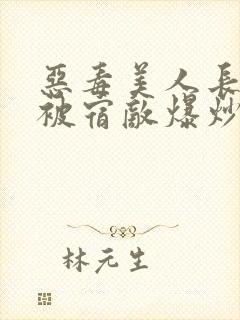 惡毒美人長
被宿敵爆炒
林元生